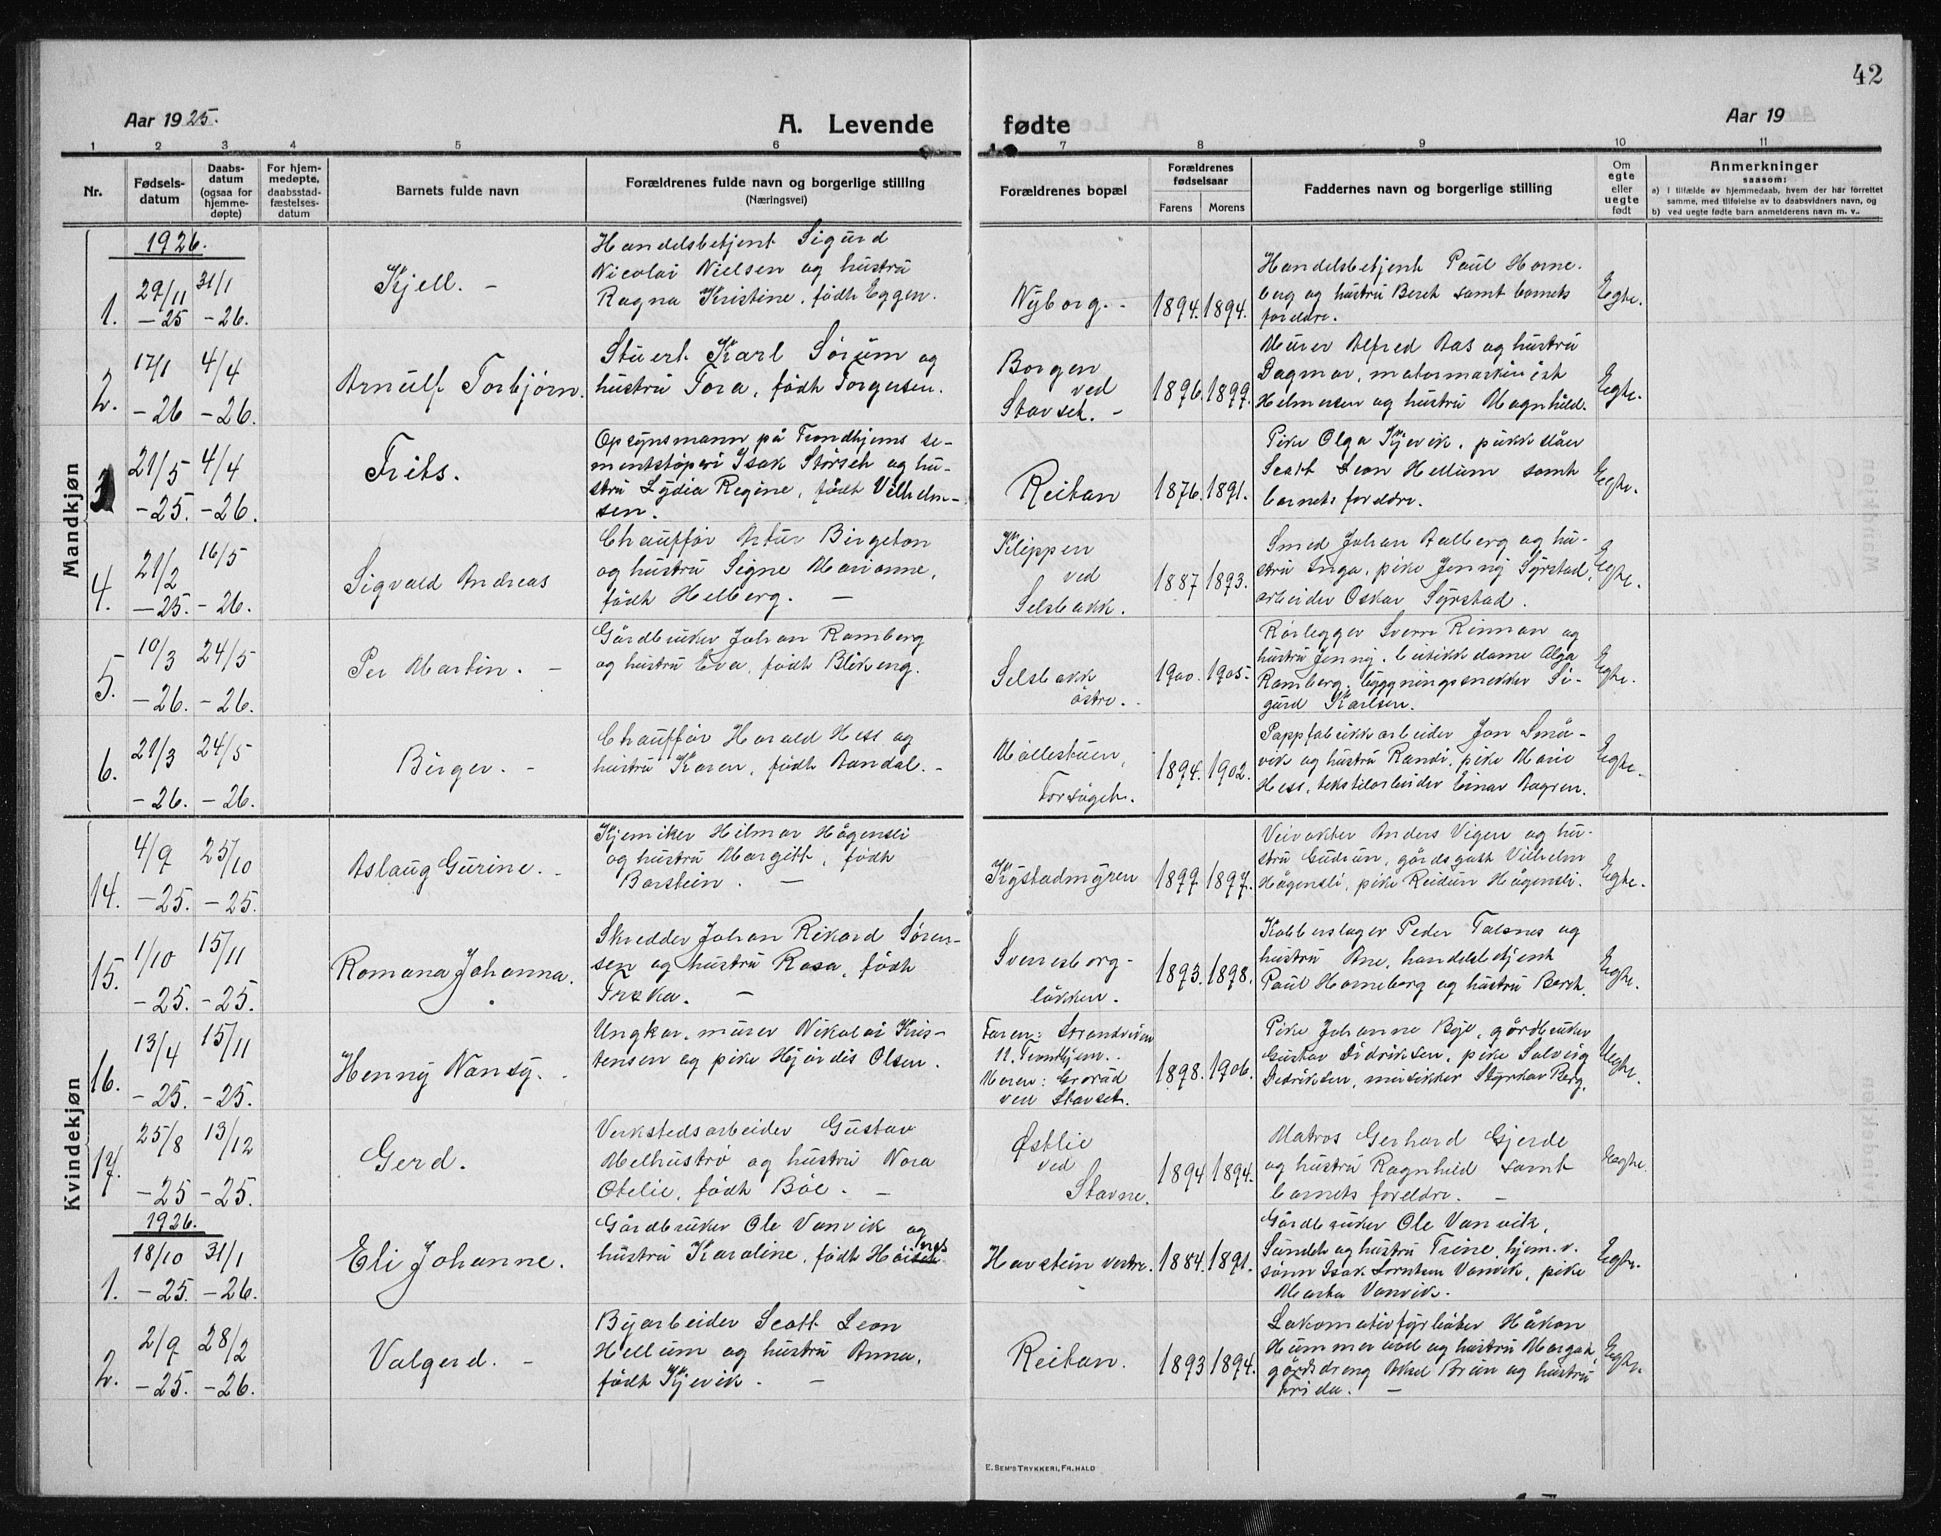 42
Aar 1925.
A. Levende
fødte
Aar 19
1 2 3 4 5 6 7 8 9 10 11
Nr.
Fødsels-
datum
Daabs-
datum
(ogsaa for
hjemme-
døpte)
For hjem-
medøpte,
daabsstad-
fæstelses-
datum
Barnets fulde navn
Forældrenes fulde navn og borgerlige stilling
(Næringsvei)
Forældrenes bopæl
Forældrenes
fødselsaar
Farens
Morens
Faddernes navn og borgerlige stilling
Om
egte
eller
uegte
født
Anmerkninger
saasom:
a) I tilfælde av hjemmedaab, hvem der har forrettet
samme, med tilføielse av to daabsvidners navn, og
b) ved uegte fødte barn anmelderens navn m. v..
Mandkjøn
1926.
1.
29/11
-25
31/1
-26.
Kjell. -
Handelsbetjent Sigurd
Nicolai Nielsen og hustru
Ragna Kristine, født Eggen.
Nyborg. -
1894. 1894.
Handelsbetjent Paul Horne-
berg og hustru Beret samt barnets
foreldre.
Egte.
2.
17/1
-26
4/4
-26.
Arnulf Torbjørn.
Stuert Karl Sørum og
hustru Tora, født Torgersen.
Borgen
ved
Stavset. -
1896. 1899.
Murer Alfred Aas og hustru
Dagmar, matormaskinist
Helmersen og hustru Magnhild.
Egte.
3
21/5
-25.
4/4
-26.
Frits.
Opsynsmann på Trondhjems se-
mentstøperi Isak Størseth og hu-
stru Lydia Regine, født Vilhelm-
sen.
Reitan
1876. 1891.
Pike Olga Kjevik, pukkslåer
Scott Leon Hellum samt
barnets foreldre.
Egte.
4.
21/2
-25.
16/5
-26.
Sigvald Andreas
Chauffør Artur Birgeton
og hustru Signe Marianne,
født Helberg. -
Klippen
ved
Selsbakk.
1887 1893.
Smed Johan Aalberg og hu-
stru Inga, pike Jenny Syrstad,
arbeider Oskar Syrstad.
Egte.
5.
10/3
-26.
24/5
-26.
Per Martin. -
Gårdbruker Johan Ramberg
og hustru Eva, født Blikeng.
Selsbakk
østre.
1900. 1905.
Rørlegger Sverre Rinnan og
hustru Jenny, butikkdame Olga
Ramberg, bygningssnekker Si-
gurd Karlsen.
Egte.
6.
21/3
-26.
24/5
-26.
Birger. -
Chauffør Harald Hess og
hustru Karen, født Aandal. -
Møllestuen,
Forsøget.
1894. 1902.
Pappfabrikkarbeider Jon Små-
vik og hustru Randi, pike Marie
Hess, tekstilarbeider Einar Aagren.
Egte.
Kvindekjøn
14.
4/9
-25.
25/10
-25.
Aslaug Gurine. -
Kjemiker Hilmar Hågensli
og hustru Margitt, født
Barstein. -
Kystadmyren
1899. 1897.
Veivokter Anders Vigen og hu-
stru Gudrun, gårdsgutt Vilhelm
Hågensli, pike Reidun Hågensli.
Egte.
15.
1/10
-25.
15/11
-25.
Romana Johanna.
Skredder Johan Rikard Søren-
sen og hustru Rosa, født
-
Svenesborg-
løkken.
1893. 1898.
Kobberslager Peder Talsnes og
hustru Ane, handelsbetjent
Paul Horneberg og hustru Beret.
Egte.
16.
13/4
-25.
15/11
-25.
Henny Nansy.
Ungkar, murer Nikolai Kris-
tensen og pike Hjørdis Olsen.
Faren: Strandveien
11. Trondhjem.
Moren:
ved Stavset.
1898. 1906.
Pike Johanne Bye, gårdbruker
Gustav Didriksen, pike Solveig
Didriksen, musikker Styrkar Berg.
Uegte.
17.
25/8
-25
13/12
-25.
Gerd.
Verkstedsarbeider Gustav
Melhustrø og hustru Nora
Otelie, født Böe. -
Østlie
ved
Stavne.
1894 1894.
Matros Gerhard Gjerde
og hustru Ragnhild samt
barnets foreldre. -
Egte.
1926.
1.
18/10
-25.
31/1
-26.
Eli Johanne.
Gårdbruker Ole Vanvik og
hustru Karoline, født
Havstein vestre.
1884. 1891.
Gårdbruker Ole Vanvik,
Sundet og hustru Trine, hjem.v.
sønn Isak Vanvik, pike
Marta Vanvik.
Egte.
2.
2/9
-25.
28/2
-26.
Valgerd. -
Byarbeider Scott Leon
Hellum og hustru Anna,
født Kjevik. -
Reitan.
1893 1894.
Lokomotivfyrbøter Håkon
og hustru Margot,
gårdsdreng Aksel Brun og hustru
Frida. -
Egte.
E. SEM'S TRYKKERI, FR.HALD